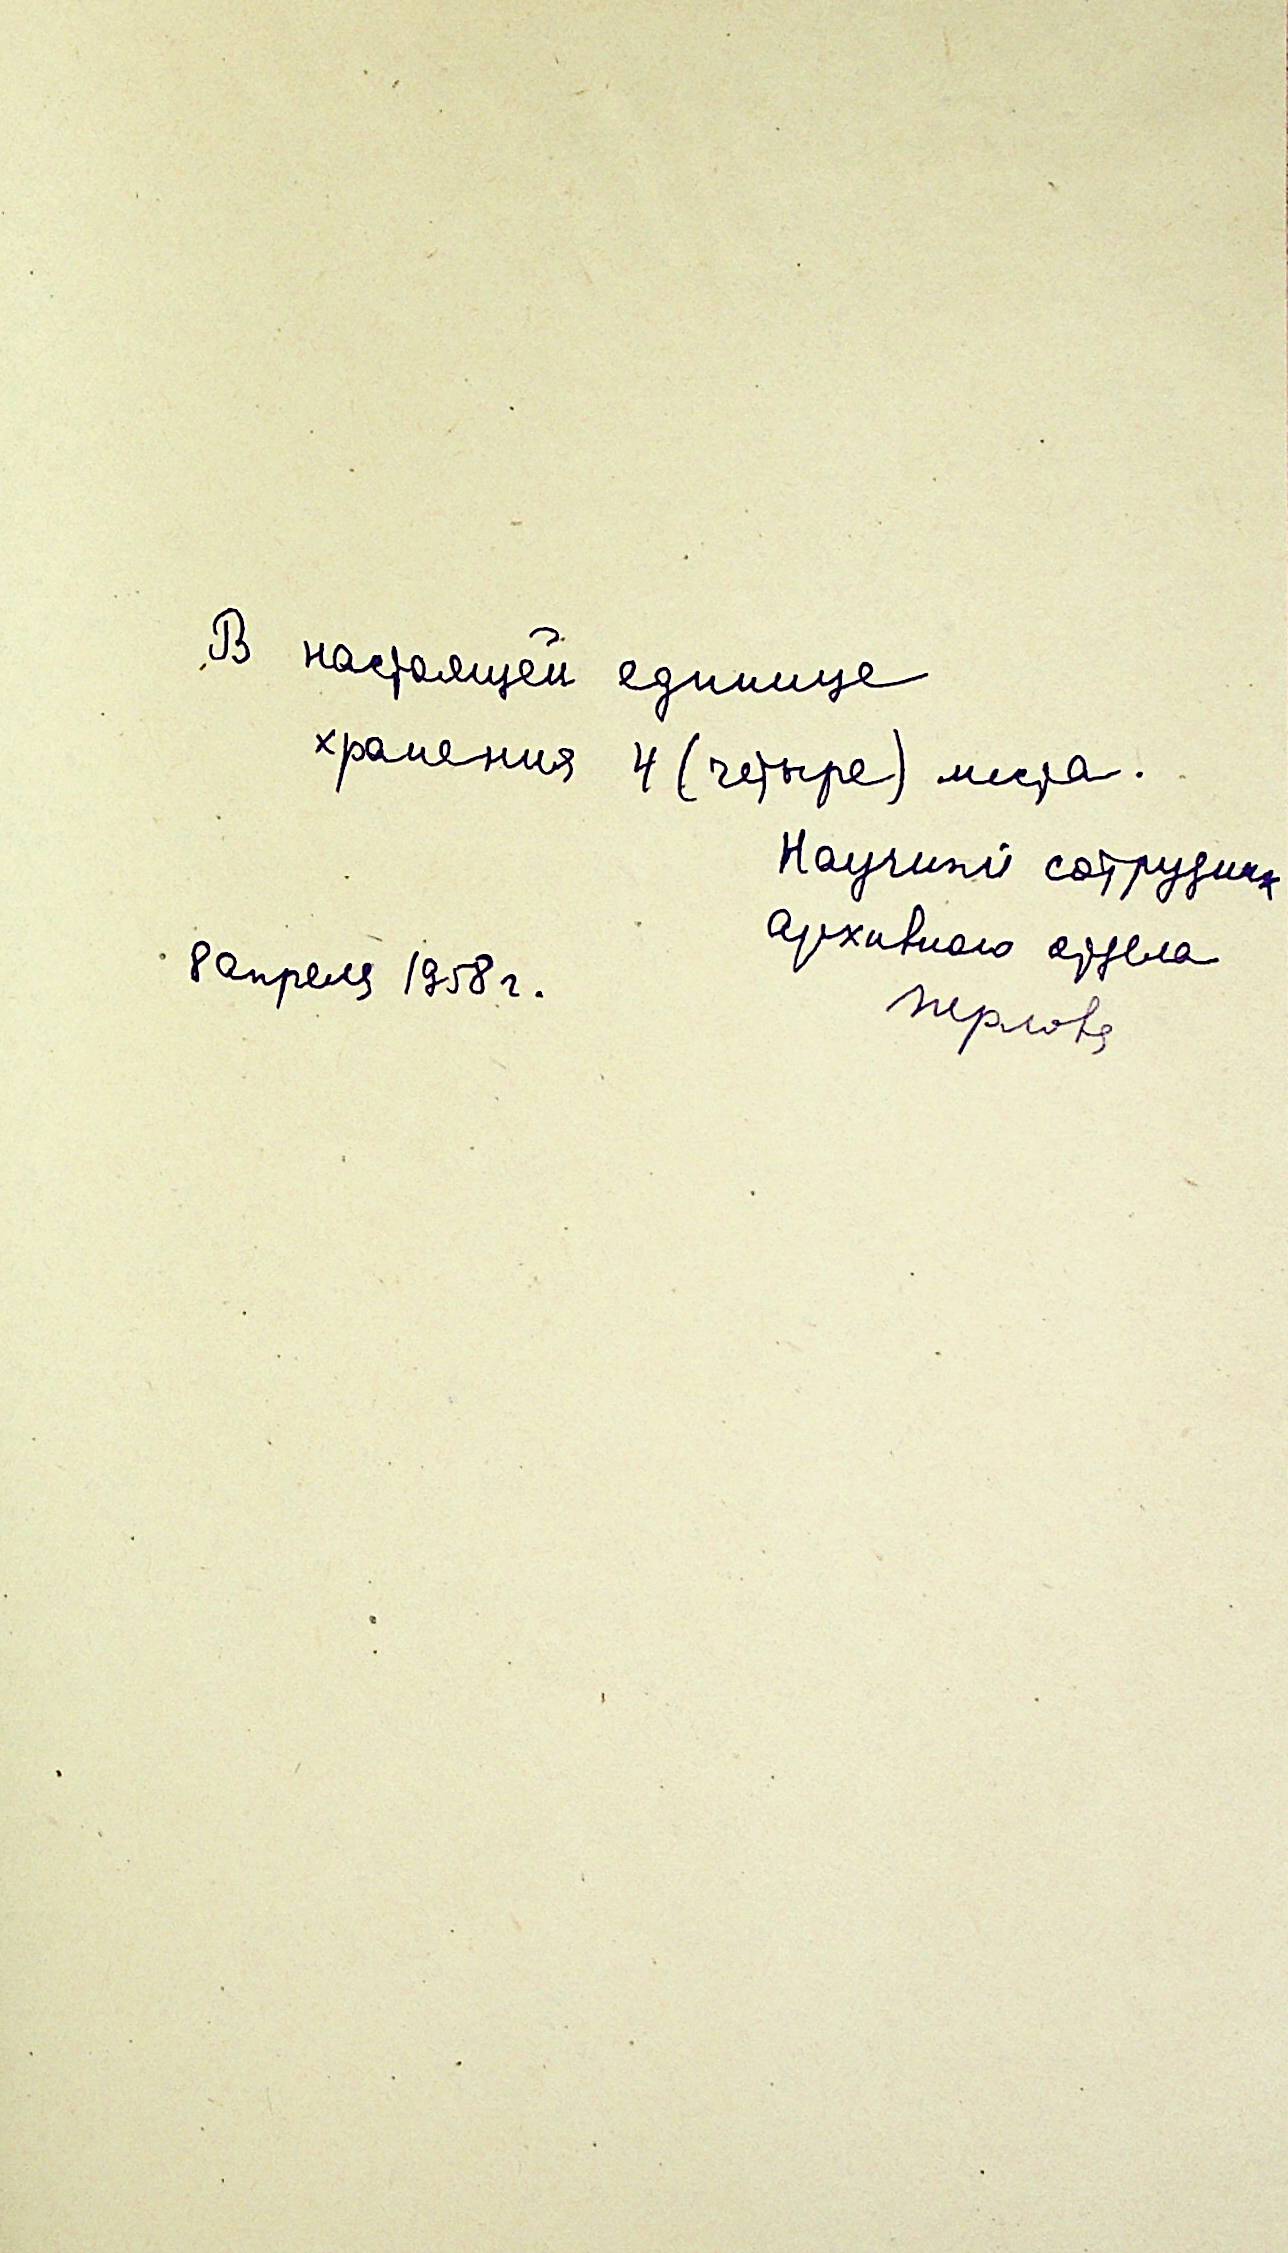 В настоящей единице
хранения 4 (четыре) листа.
Научный сотрудник
архивного отдела
8 апреля 1958 г.